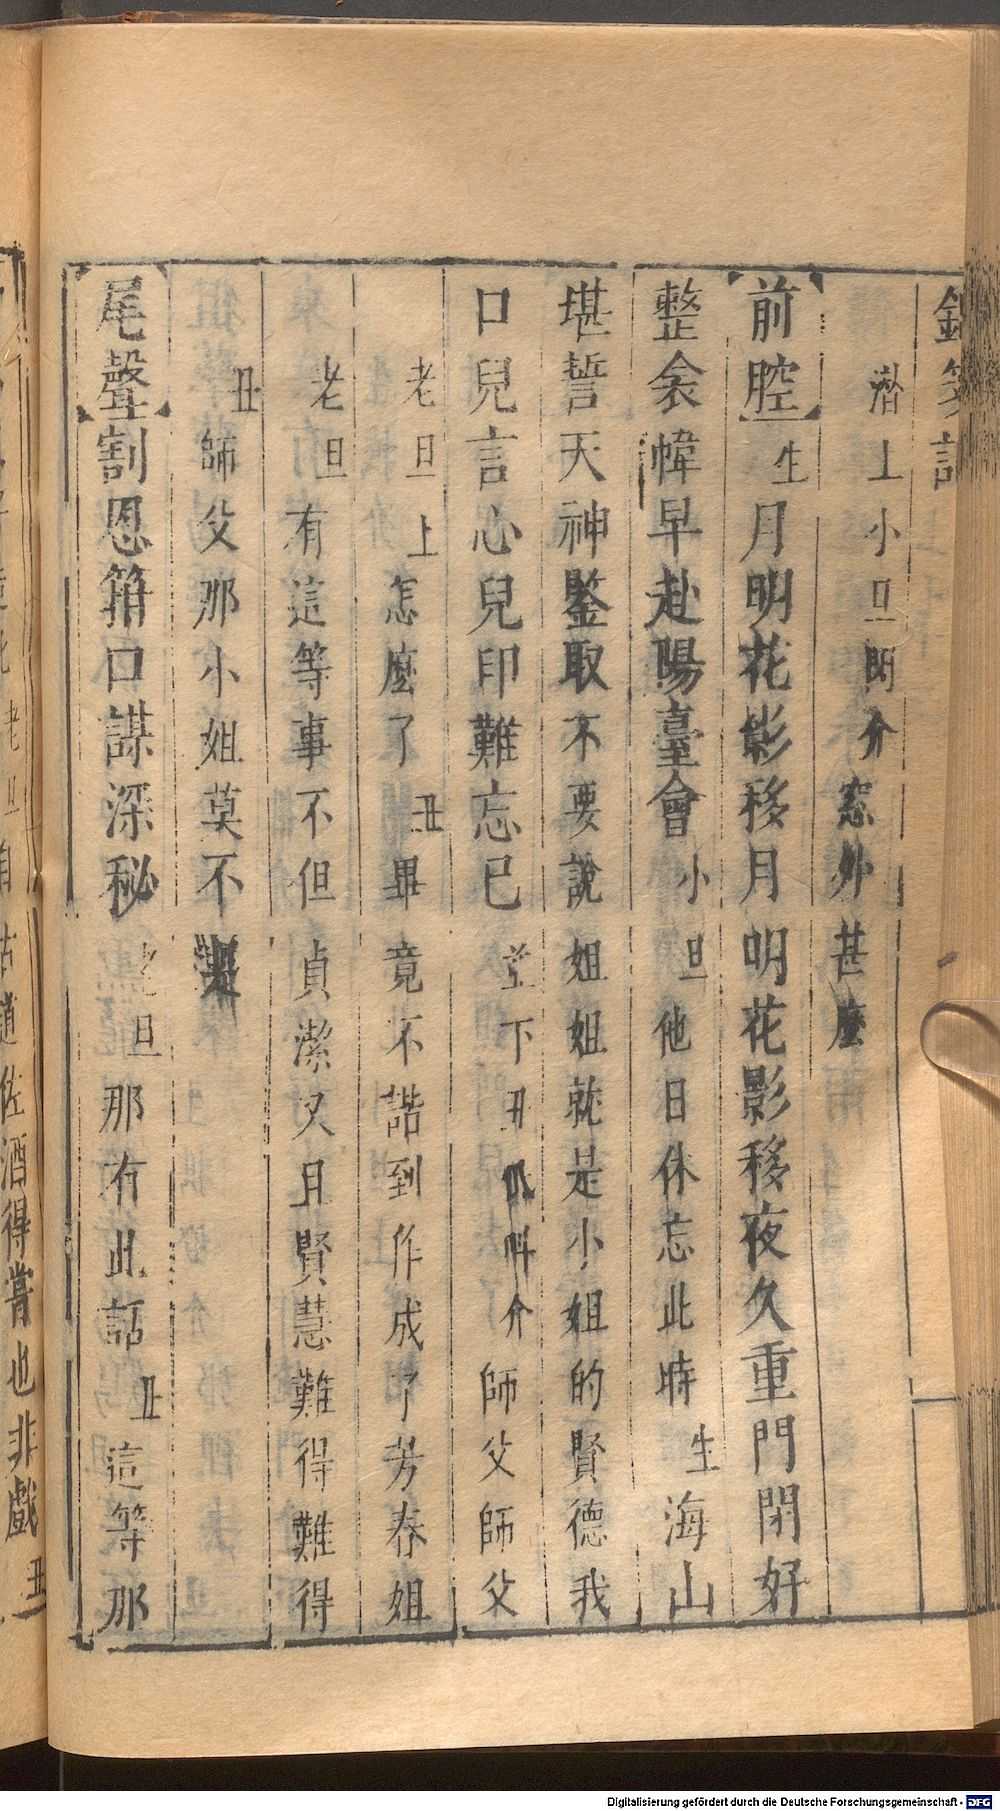 釵釧記
潛上小旦閉介窓外甚麼
【前腔】生月明花影移月明花影移夜久重門閉好
整衾幃早赴陽臺會小旦他日休忘此時生海山
堪誓天神鑒取不要說姐姐就是小姐的賢德我
口兒言心兒印難忘巳並下丑叫介師父師父
老旦上怎麼了丑畢竟不諧到作成了芳春姐
老旦有這等事不但貞潔又且賢慧難得難得
丑師父那小姐莫不是
【尾聲】割恩箝口謀深秘老旦那有此話丑這等那
佐酒得嘗也非戲丑
Digitalisierung gefördert durch die Deutsche Forschungsgemeinschaft - DFG